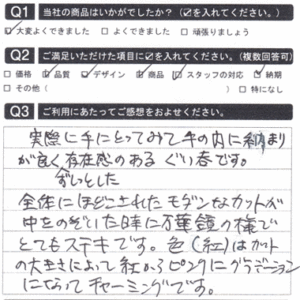 Q1 当社の商品はいかがでしたか？（☑を入れてください。）
☑大変よくできました □よくできました □頑張りましょう
Q2 ご満足いただけた項目に☑を入れてください。（複数回答可）
□価格 ☑品質 ☑デザイン ☑商品 ☑スタッフの対応 ☑納期
□その他（ ） □特になし
Q3 ご利用にあたってご感想をおよせください。
実際に手にとってみて手の内に納まり
が良く存在感のある ぐい呑です。
ずしっとした
全体にほどこされたモダンなカットが
中をのぞいた時に万華鏡の様で
とてもステキです。色（紅）はカット
の大きさによって紅からピンクにグラデーション
になってチャーミングです。